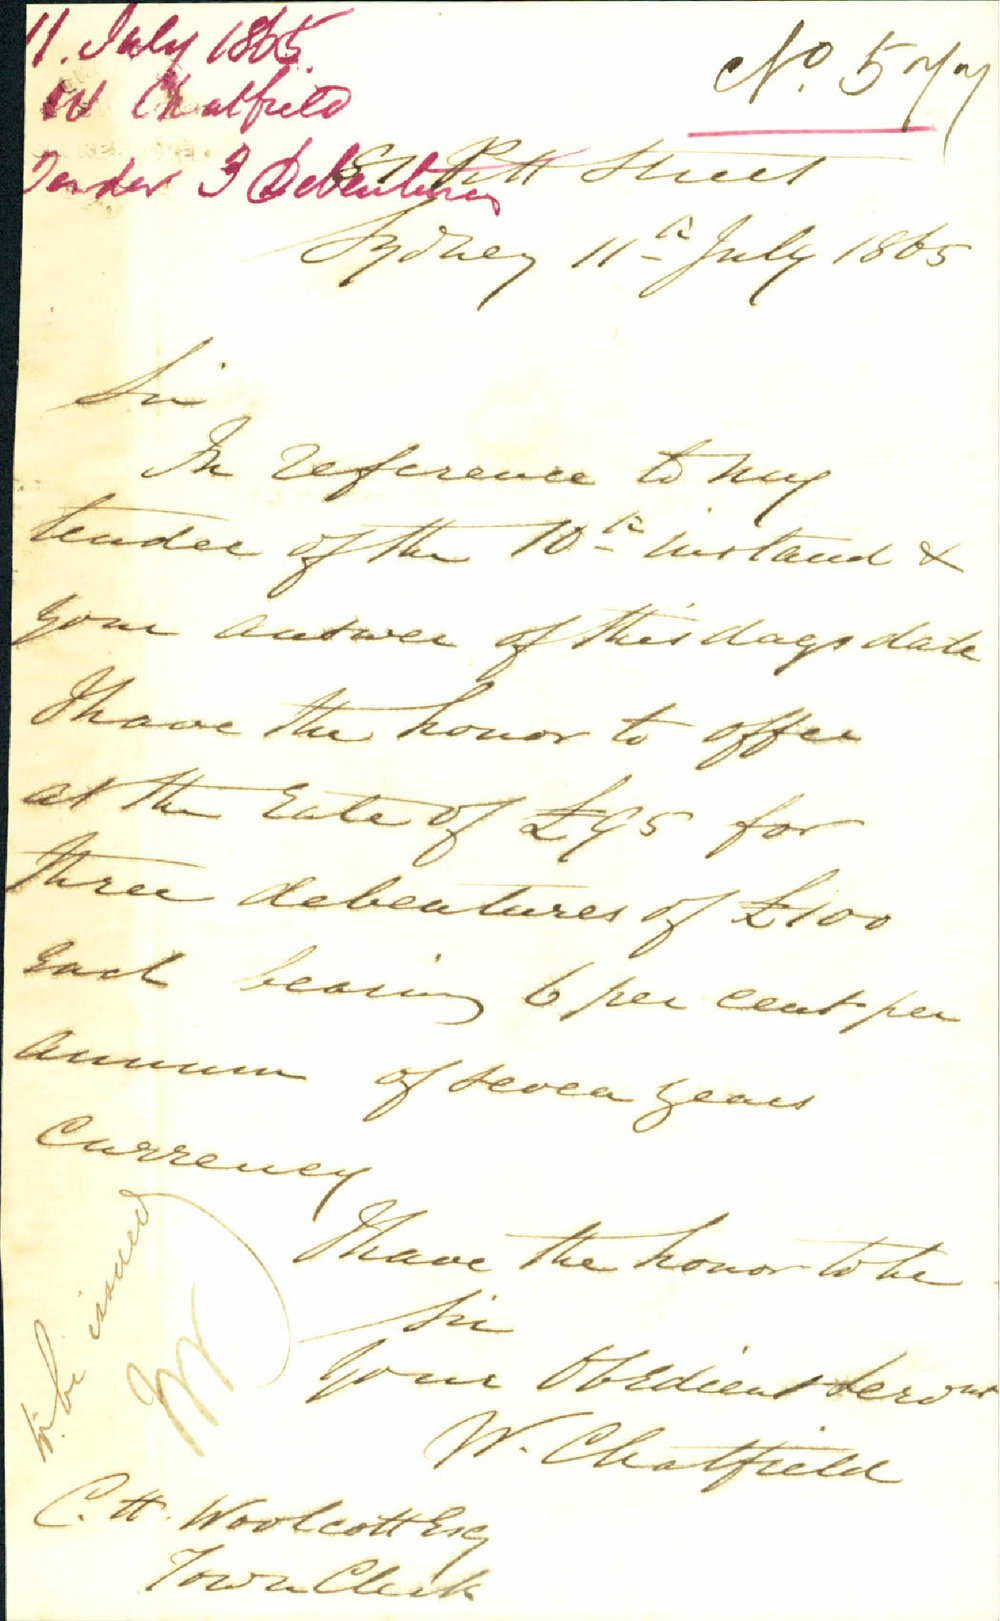 11. July 1865.
W Chatfield
Tender 3 Debentures
No. 577
Pitt Street
Sydney 11th July 1865
Sir
In reference to my
tender of the 10th instand &
your answer of this days date
I have the honor to offer
at the rate of £95 for
three debentures of £100
each bearing 6 per cent per
annum of seven years
currency
I have the honor to be
Sir
Your Obedient Servant
W. Chatfield
to be issued
C. H. Woolcott Esq
Town Clerk